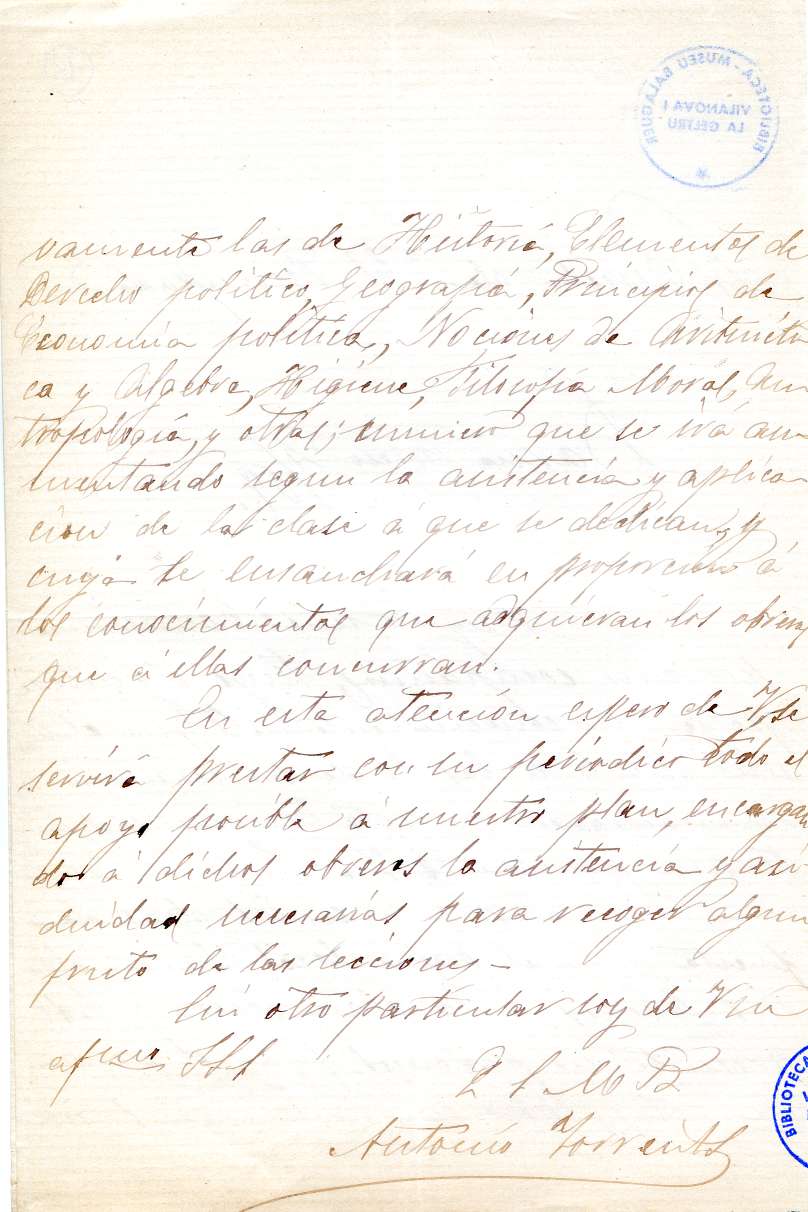 BIBLIOTECA - MUSEU BALAGUER
VILANOVA I
LA GELTRU
vamente las de Historia, Elementos de
Derecho politico, Geografia, Principios de
Economia politica, Nociones de Aritméti
ca y Algebra, Higiene, Filosofia Moral, An
tropologia, y otras; número que se irá au
mentando segun la asistencia y aplica
cion de la clase á que se dedican, y
cuya se ensanchará en proporcion á
los conocimientos que adquieran los obreros
que á ellas concurran.
En esta atención espero de V. se
servirá prestar con su periodico todo el
apoyo posible á nuestro plan, encargan
do á dichos obreros la asistencia y asi
duidad necesarias para recoger algun
fruto de las lecciones.—
Sin otro particular soy de V. su
afmo SSS
Q S M B
Antonio Torrents
BIBLIOTECA